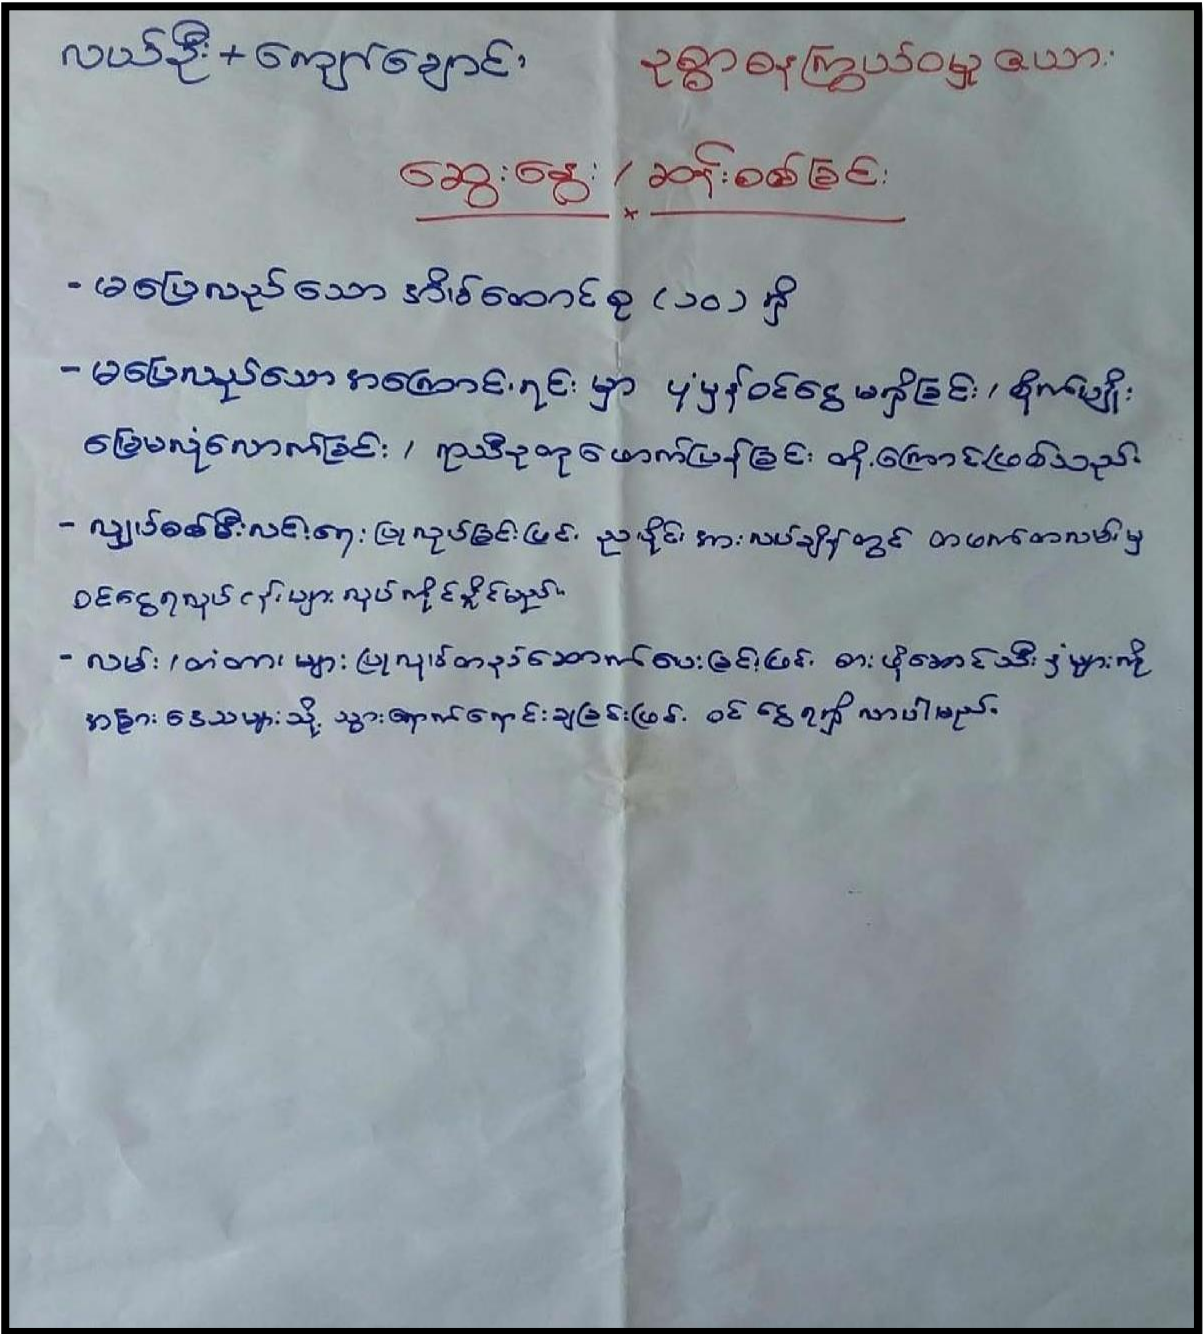 လယ်ဦး + ကျောက်ချောင်း ဥစ္စာဓနကြွယ်ဝမှု ဇယား
ဆွေးနွေး / ဆန်းစစ်ခြင်း
- မပြေလည်သော အိမ်ထောင်စု (၁၀) ရှိ
- မပြေလည်သော အကြောင်းရင်း မှာ ပုံမှန်ဝင်ငွေ မရှိခြင်း / စိုက်ပျိုး
မြေမလုံလောက်ခြင်း / ရာသီဥတု ဖောက်ပြန်ခြင်း တို့ကြောင့်ဖြစ်သည်။
- လျှပ်စစ်မီးလင်းရေး ပြုလုပ်ခြင်းဖြင့် ညပိုင်း အားလပ်ချိန်တွင် တဖက်တလမ်းမှ
ဝင်ငွေရလုပ်ငန်းများ လုပ်ကိုင်နိုင်မည်။
- လမ်း / တံတား များ ပြုလုပ်တည်ဆောက်ပေးခြင်းဖြင့် စားပိုအောင်သီးနှံများကို
အခြား ဒေသများသို့ သွားရောက်ရောင်းချခြင်းဖြင့် ဝင်ငွေရရှိ လာပါမည်။